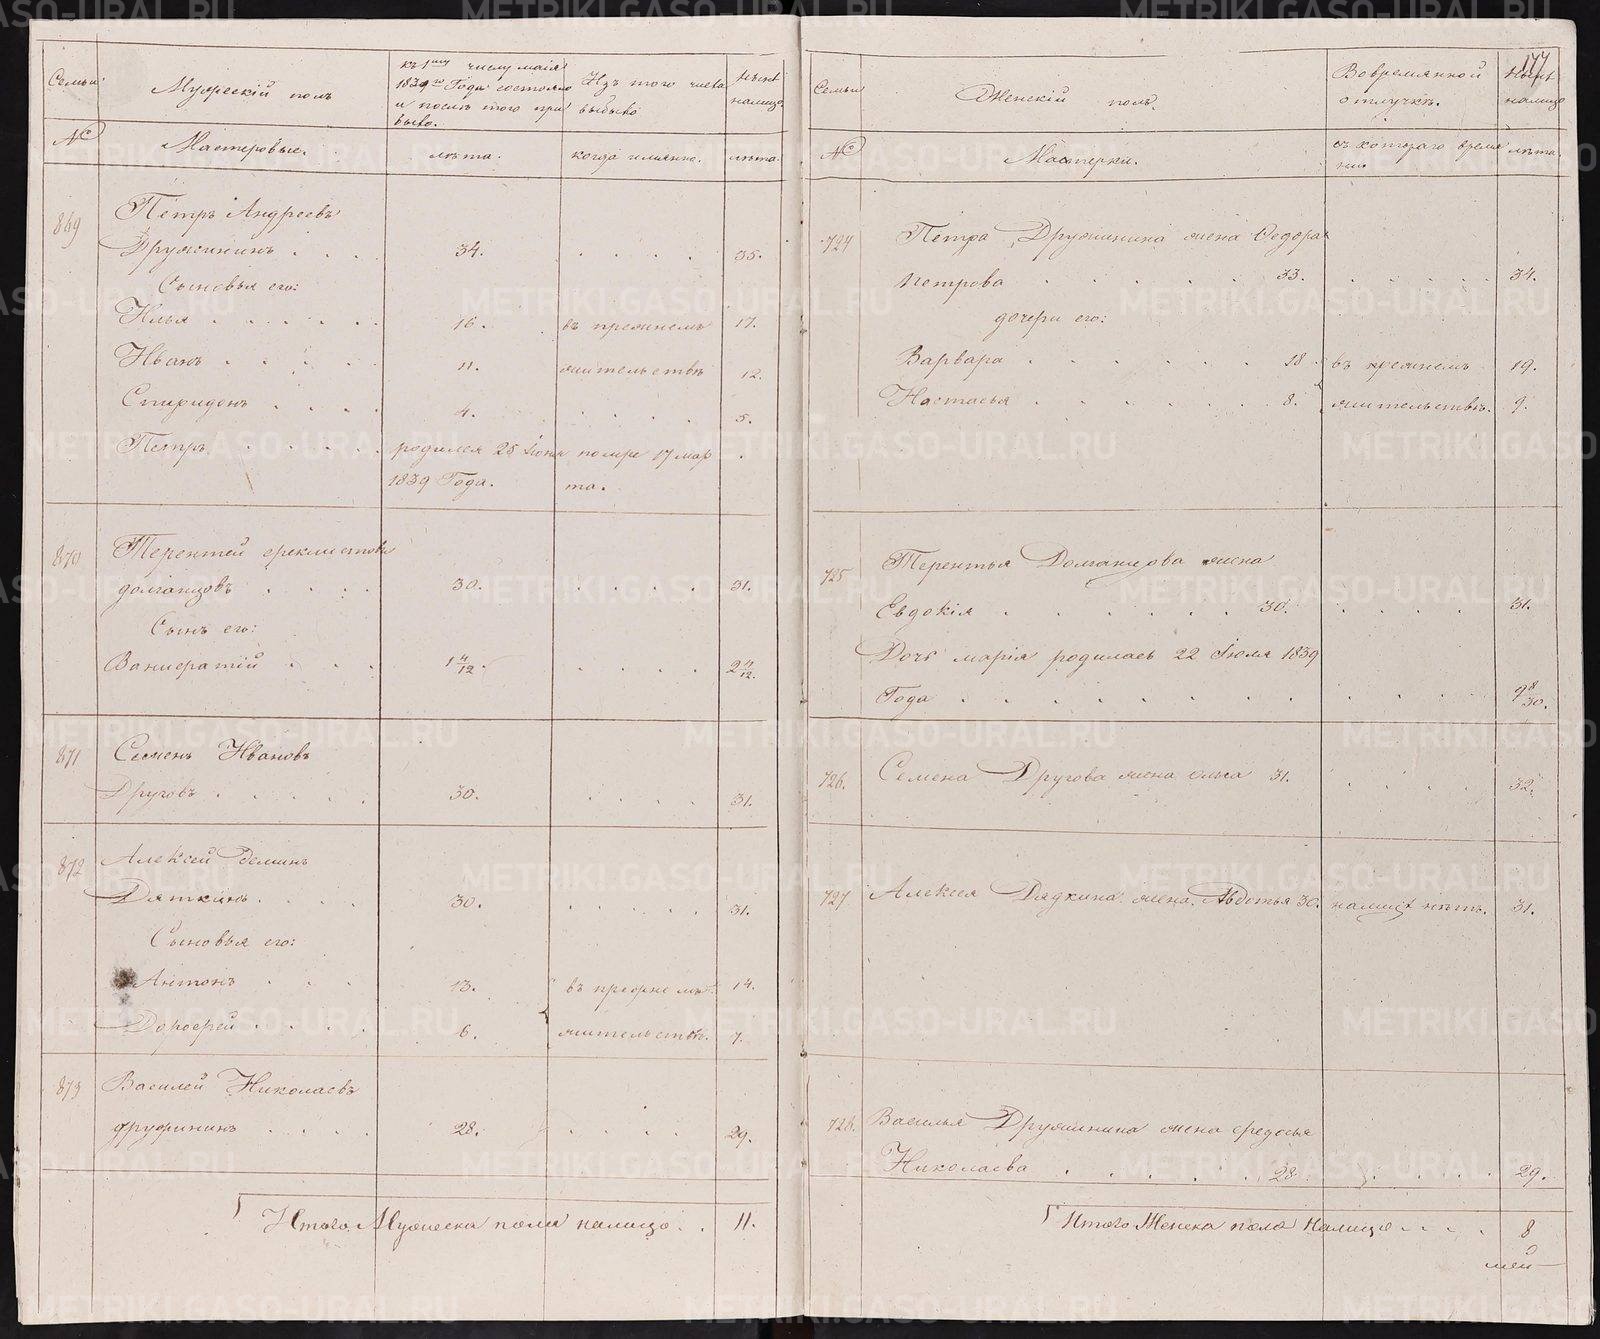 177
Семьи
Мужескій полъ
къ 1му числу маія
1839го Года состояло
и послѣ того при
было.
Изъ того числа
выбыло
нынѣ
налицо
№
Мастеровые.
лѣта.
когда имянно.
лѣта.
869
Петръ Андреевъ
Дружининъ . . . 34. . . . . 35.
Сыновья его:
Илья . . . . . . 16. въ прежнемъ 17.
Иванъ . . . . . 11. жительствѣ 12.
Спиридонъ . . . . 4. . . . . 5.
Петръ . . . . родился 25 Іюня помре 17 мар
1839 Года. та.
870
Терентей Феклистовъ
долганцовъ . . . . 30. . . . . 31.
Сынъ его:
Панкратій . . . 1 4/12. . . . . 2 4/12.
871
Семенъ Ивановъ
Друговъ . . . . . 30. . . . . 31.
872
Алексей Деминъ
Дяткинъ . . . . 30. . . . . 31.
Сыновья его:
Антонъ . . . 13. въ прежнемъ 14.
Дорофей . . . . 6. жительствѣ. 7.
873
Василей Николаевъ
дружининъ . . . . 28. . . . . 29.
Итого Мужеска пола налицо . . 11.
Семьи
Женскій полъ.
Вовремянной
отлучкѣ.
нынѣ
налицо
№
Мастерки.
съ котораго время
ни
лѣта.
724
Петра Дружинина жена Федора
петрова . . . . . 33. . . . . 34.
дочери его:
Варвара . . . . . . 18 въ прежнемъ 19.
Настасья . . . . . . 8. жительствѣ. 9.
725
Терентья Долганцова жена
Евдокія . . . . . . 30. . . . . 31.
Дочь марія родилась 22 Іюля 1839
Года . . . . . . . . . . 9 8/30.
726.
Семена Другова жена олга 31. . . . . 32.
727
Алексея Дядкина жена Авдотья 30. налицѣ нѣтъ. 31.
728.
Василья Дружинина жена Федосья
Николаева . . . . . 28. . . . . 29.
Итого Женска пола налицо . . . . 8
METRIKI.GASO-URAL.RU